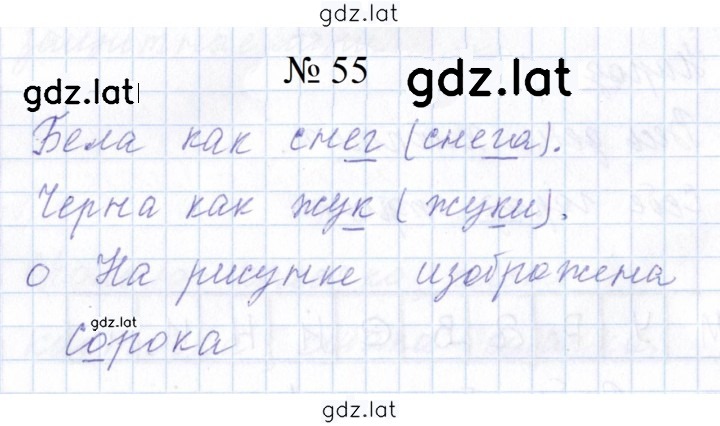 gdz.lat
№ 55
gdz.lat
gdz.lat
Бела как снег (снега).
Черна как жук (жуки).
О На рисунке изображена
gdz.lat
сорока
gdz.lat